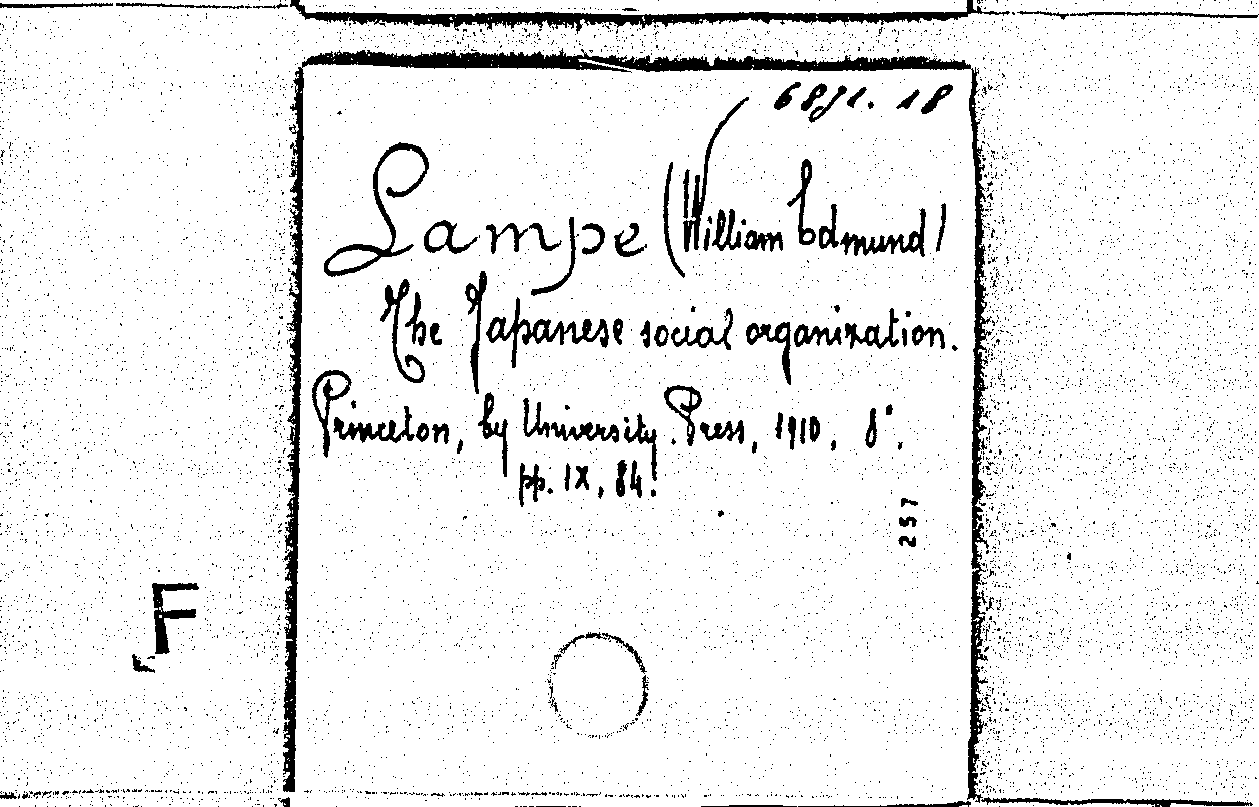 6891. 18
Lampe (William Edmund)
The Japanese social organization.
Princeton, by University Press, 1910, 8°.
pp. IX, 84.
257
F
F